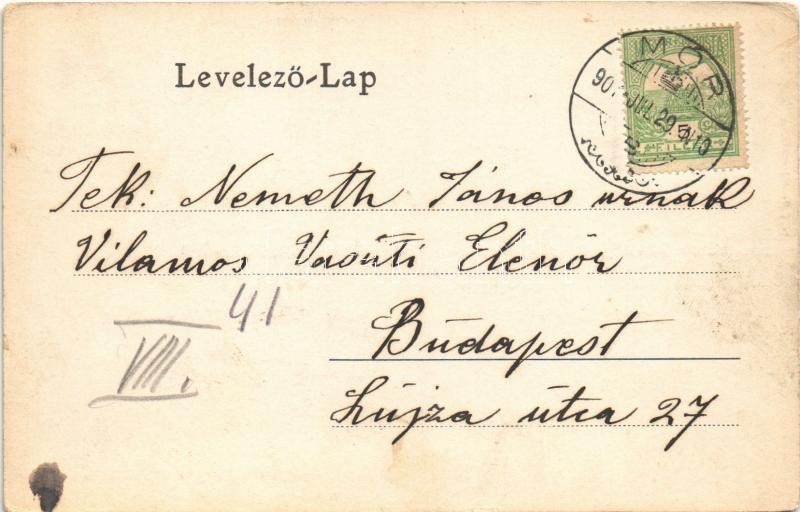 Levelező-Lap
MÓR
Tek: Nemeth János urnak
Vilamos Vasúti Elenör
41
VIII.
Budapest
Lujza útca 27